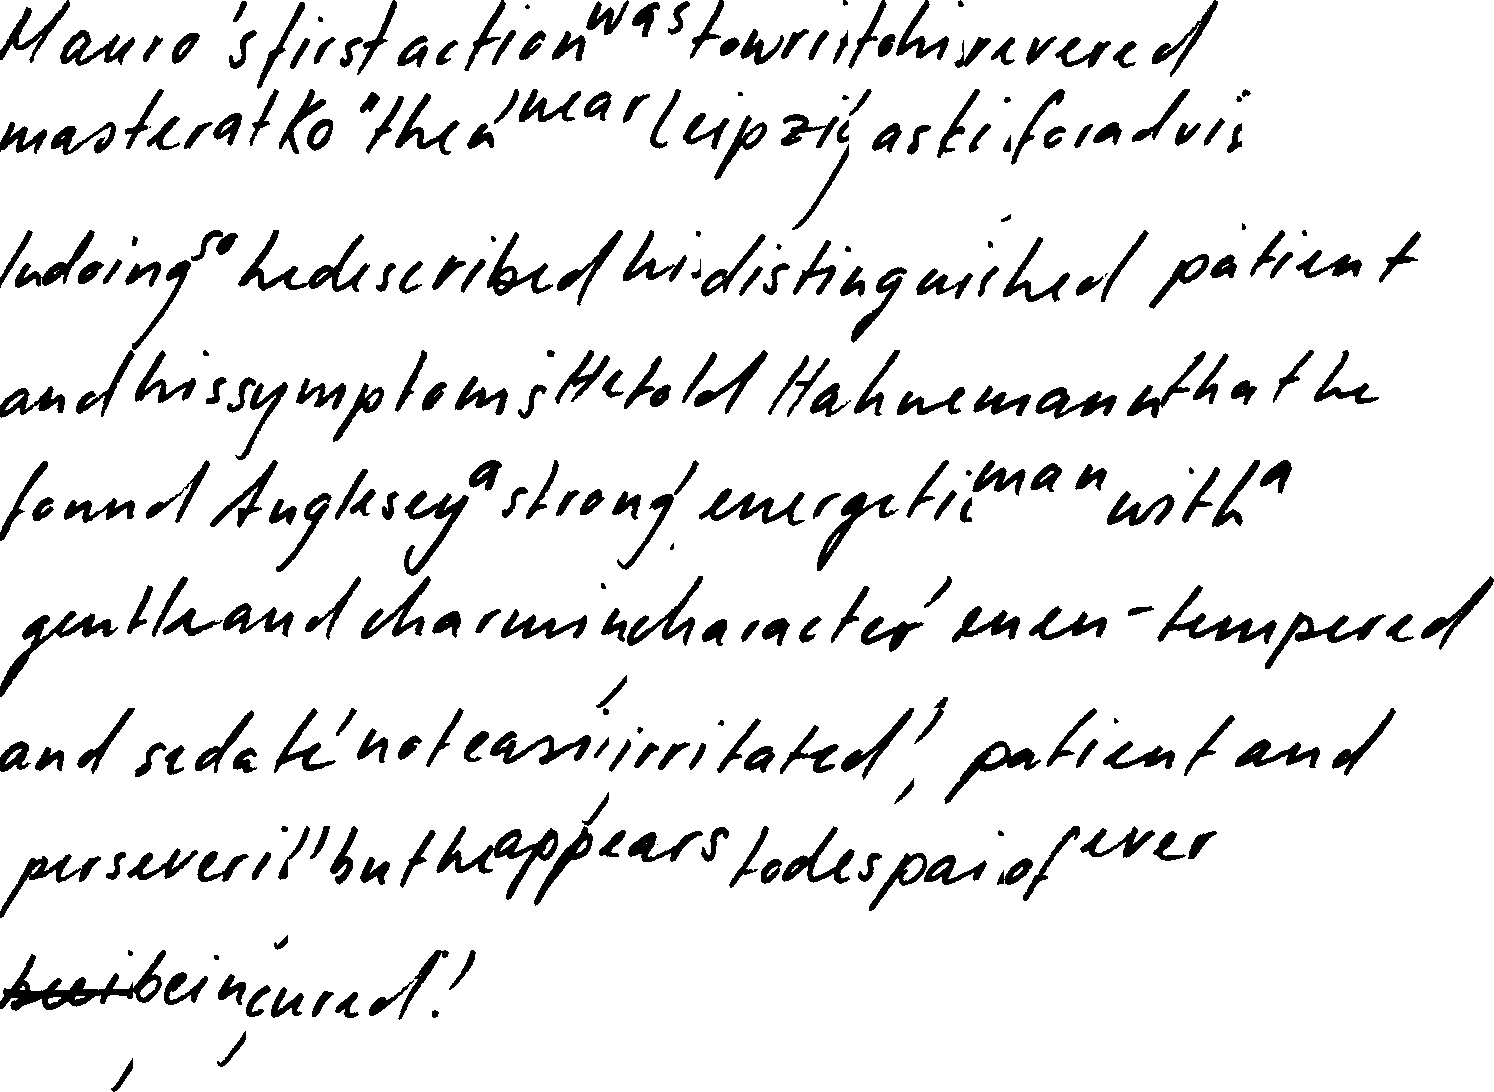 Mauro's first action was to write to his revered
master at Ko"then' near Leipzig, asking for advice
In doing so he described his distinguished patient
and his symptoms. He told Hahnemann that he
found Anglesey a strong, energetic man with a
gentle and charming character, even-tempered
and sedate, not easily irritated', patient and
persevering, 'but he appears to despair of ever
being cured.'